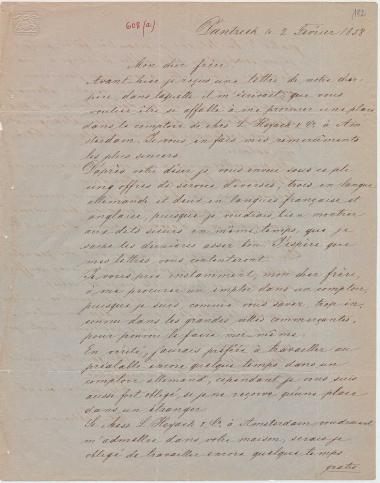 608 (a)
192
le 2 Février 1858
Mon cher frère
Avant hier je reçus une lettre de notre cher
père, dans laquelle il m'écrivait que vous
vouliez être si affable à me procurer une place
dans le comptoir de chess L. Heyack & Co. à Am-
sterdam. Je vous en fais mes remerciments
les plus sincers.
D'après votre désir je vous envoie sous ce pli
cinq offres de services diverses, trois en langue
allemande et deux en langues française et
anglaise, puisque je voudrais bien montrer
aux dits sieurs en même temps, que je
sache les dernières asser bon. J'espère que
mes lettres vous contenteront.
Je vous prie instamment, mon cher frère,
à me procurer un emploi dans un comptoir,
puisque je suis, comme vous savez, trop in-
connu dans les grandes villes commerçantes,
pour pouvoir le faire moi-même.
En vérité, j'aurais préféré à travailler au
préalable encore quelque temps dans un
comptoir allemand, cependant je vous suis
aussi fort obligé, si je ne reçoive qu'une place
dans un étranger.
Si chess L. Heyack & Co. à Amsterdam voudraient
m'admettre dans votre maison, serais-je
obligé de travailler encore quelque temps
gratis